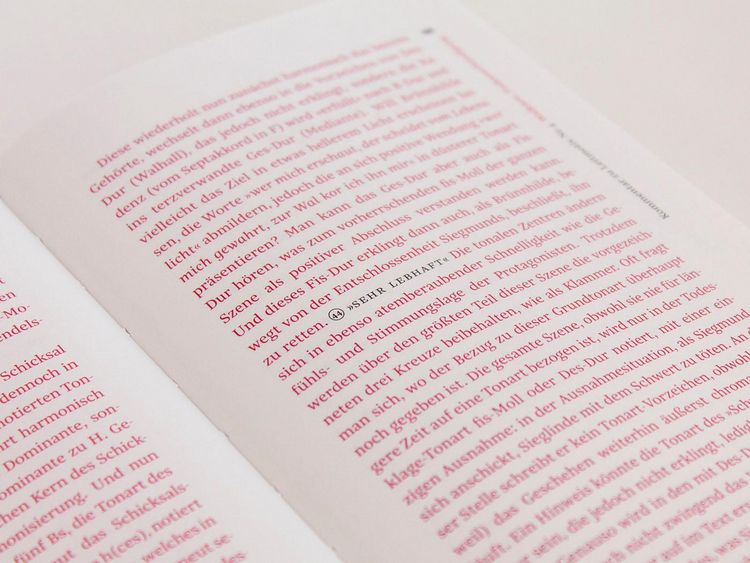 Mo-
ndels-
Schicksal
dennoch in
notierten Ton-
art harmonisch
Dominante, son-
ominante zu H. Ge-
chen Kern des Schick-
monisierung. Und nun
fünf Bs, die Tonart des
ut das Schicksals-
ah(ces), notiert
welches in
neut se-
Diese wiederholt nun zunächst harmonisch das bereits
Gehörte, wechselt dann ebenso in die
Dur (Walhall), das jedoch nicht erklingt, sondern die Ka-
denz (vom Septakkord in F) wird verfüllt nach B-Dur und
ins terzverwandte Ges-Dur (Mediante). Will Brünnhilde
vielleicht das Ziel in etwas hellerem Licht erscheinen las-
sen, die Worte »wer mich erschaut, der scheidet vom Lebens-
licht« abmildern, jedoch die an sich positive Wendung »wer
mich gewahrt, zur Wal kor ich ihn mir« in düsterer Tonart
präsentieren? Man kann das Ges-Dur aber auch als Fis-
Dur hören, was zum vorherrschenden fis-Moll der ganzen
Szene als positiver Abschluss verstanden werden kann.
Und dieses Fis-Dur erklingt dann auch, als Brünnhilde, be-
wegt von der Entschlossenheit Siegmunds, beschließt, ihn
zu retten. 44 »SEHR LEBHAFT« Die tonalen Zentren ändern
sich in ebenso atemberaubender Schnelligkeit wie die Ge-
fühls- und Stimmungslage der Protagonisten. Trotzdem
werden über den größten Teil dieser Szene die vorgezeich-
neten drei Kreuze beibehalten, wie als Klammer. Oft fragt
man sich, wo der Bezug zu dieser Grundtonart überhaupt
noch gegeben ist. Die gesamte Szene, obwohl sie nie für län-
gere Zeit auf eine Tonart bezogen ist, wird nur in der Todes-
klage-Tonart fis-Moll oder Des-Dur notiert, mit einer ein-
zigen Ausnahme: in der Ausnahmesituation, als Siegmund
sich anschickt, Sieglinde mit dem Schwert zu töten. An
ser Stelle schreibt er kein Tonart-Vorzeichen, obwohl
weil) das Geschehen weiterhin äußerst chrom
haft. Ein Hinweis könnte die Tonart des »Sch
er sein, die jedoch nicht erklingt, ledig
Genauso wird in den mit Des
ch nicht zwingend das
er auf im Text er
Kommentar zu Leitmotiv Nr. 4